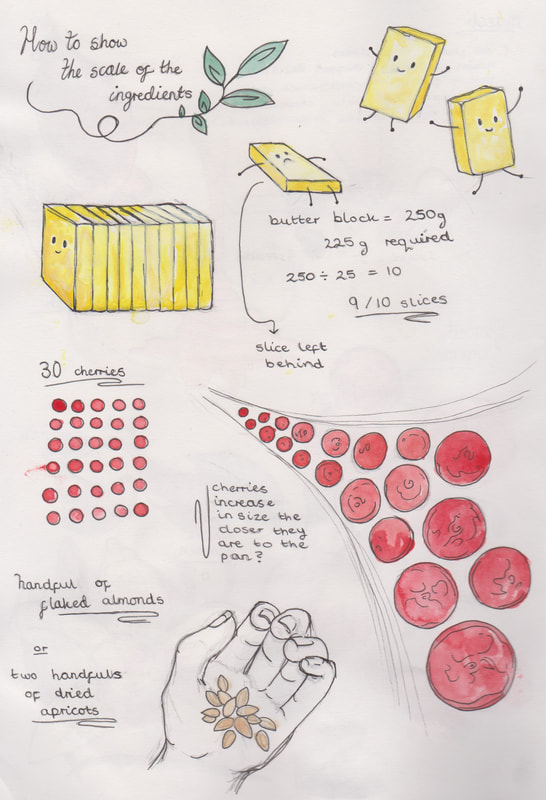 How to show
the scale of the
ingredients
butter block = 250g
225g required
250 ÷ 25 = 10
9/10 slices
slice left
behind
30 cherries
cherries
increase
in size the
closer they
are to the
pan?
handful of
flaked almonds
or
two handfuls
of dried
apricots